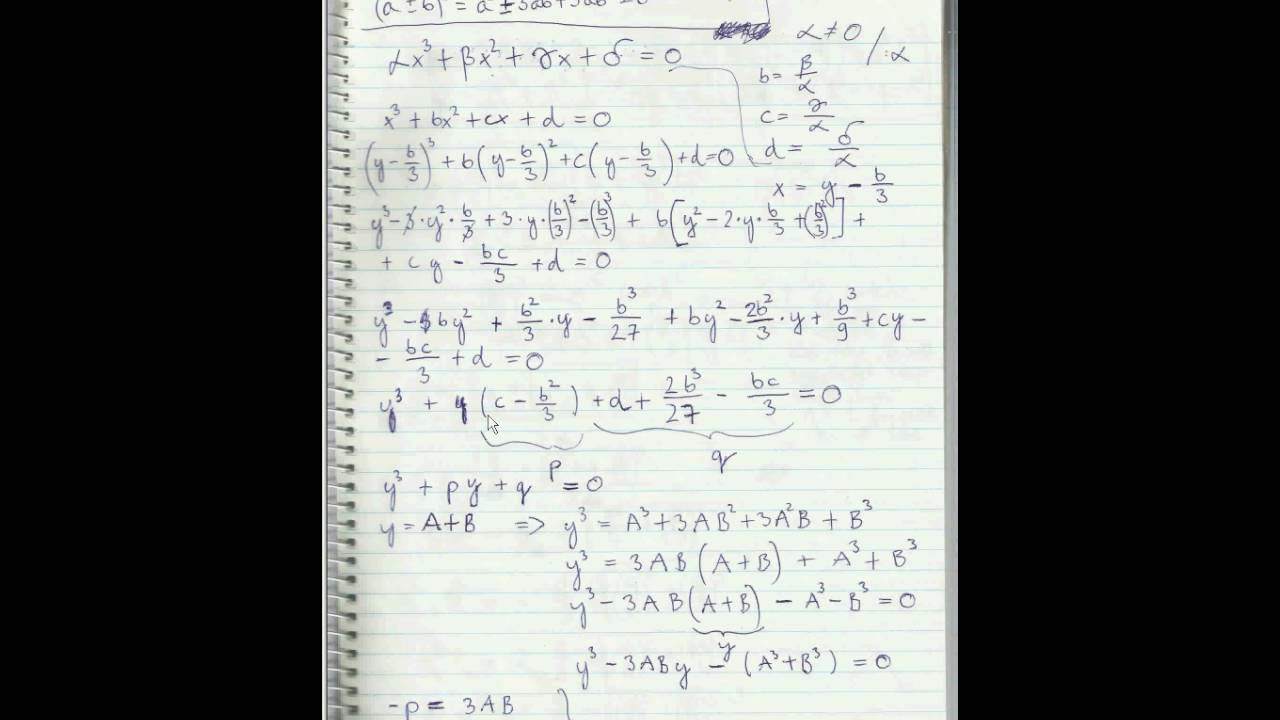 αx³ + βx² + γx + δ = 0
α ≠ 0 / :α
b = β/α
c = γ/α
d = δ/α
x = y - b/3
x³ + bx² + cx + d = 0
(y - b/3)³ + b(y - b/3)² + c(y - b/3) + d = 0
y³ - 3·y²·b/3 + 3·y·(b/3)² - (b/3)³ + b[y² - 2·y·b/3 + (b/3)²] +
+ cy - bc/3 + d = 0
y³ - by² + b²/3·y - b³/27 + by² - 2b²/3·y + b³/9 + cy -
- bc/3 + d = 0
y³ + y(c - b²/3) + d + 2b³/27 - bc/3 = 0
p
q
y³ + py + q = 0
y = A+B => y³ = A³ + 3AB² + 3A²B + B³
y³ = 3AB(A+B) + A³ + B³
y³ - 3AB(A+B) - A³ - B³ = 0
y
y³ - 3ABy - (A³+B³) = 0
-p = 3AB